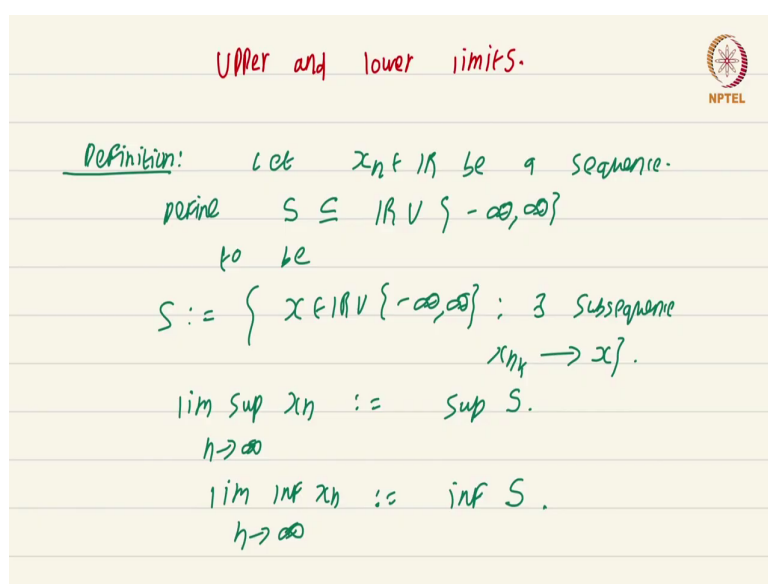 Upper and lower limits.
NPTEL
Definition: Let xₙ ∈ ℝ be a sequence.
Define S ⊆ ℝ ∪ {-∞,∞}
to be
S := { x ∈ ℝ ∪ {-∞,∞} : ∃ subsequence
xₙₖ → x}.
lim sup xₙ := sup S.
n→∞
lim inf xₙ := inf S.
n→∞